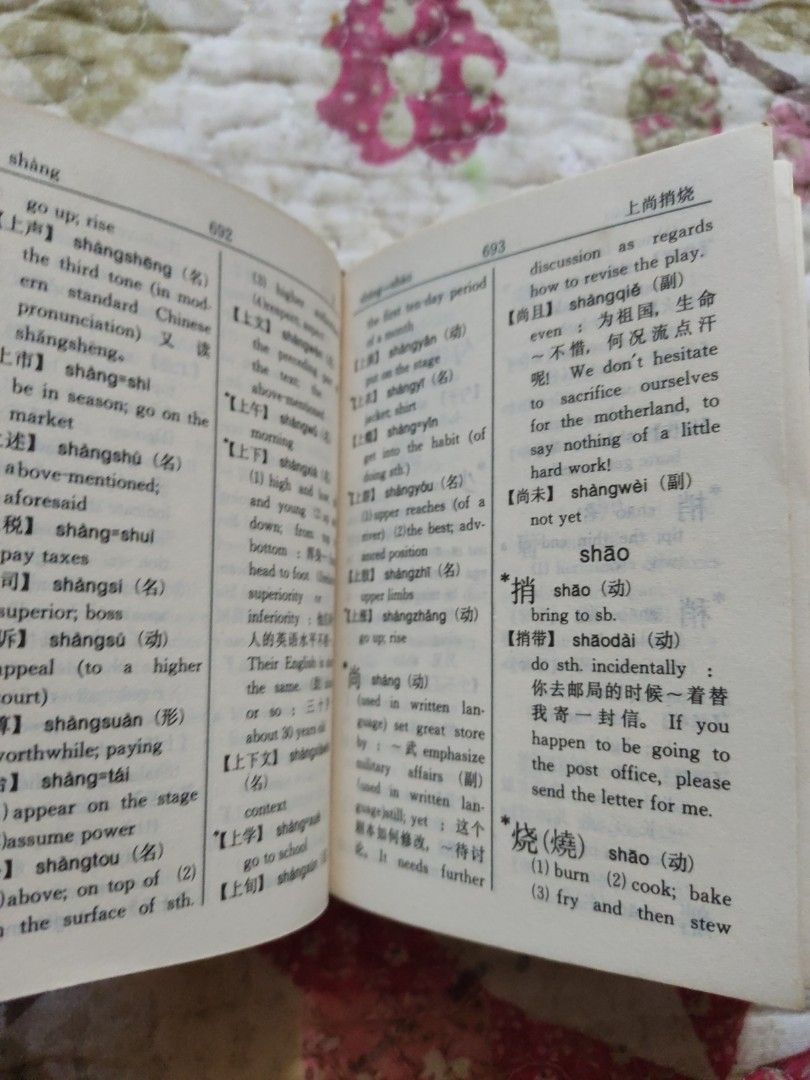 shàng
692
go up; rise
【上声】 shǎngshēng (名)
the third tone (in mod-
ern standard Chinese
pronunciation) 又读
shàngshēng。
上市】 shàng=shì
be in season; go on the
market
述】 shàngshù (名)
above-mentioned;
aforesaid
税】 shàng=shuì
pay taxes
司】 shàngsi (名)
superior; boss
诉】 shàngsù (动)
appeal (to a higher
court)
算】 shàngsuàn (形)
worthwhile; paying
台】 shàng=tái
appear on the stage
assume power
shàngtou (名)
above; on top of (2)
the surface of sth.
(3) higher
(4)respect, aspect
【上文】 shàngwén
the preceding
the text; the
above-mentioned
*【上午】 shàngwǔ
morning
*【上下】 shàngxià
(1) high and low
and young (2)
down; from top
bottom : 浑身
head to foot
superiority or
inferiority :
人的英语水平不
Their English is
the same.
or so : 三十
about 30 years old
【上下文】 shàngxiàwén
(名)
context
*【上学】 shàng=xué
go to school
【上旬】 shàngxún
693
上尚捎烧
shang—shāo
the first ten-day period
of a month
【上演】 shàngyǎn (动)
put on the stage
【上衣】 shàngyī (名)
jacket; shirt
【上瘾】 shàng=yǐn
get into the habit (of
doing sth.)
【上游】 shàngyóu (名)
(1)upper reaches (of a
river) (2)the best; adv-
anced position
【上肢】 shàngzhī (名)
upper limbs
【上涨】 shàngzhǎng (动)
go up; rise
*尚 shàng (动)
(used in written lan-
guage) set great store
by : ～武 emphasize
military affairs (副)
(used in written lan-
guage)still; yet : 这个
剧本如何修改，～待讨
论。It needs further
discussion as regards
how to revise the play.
【尚且】 shàngqiě (副)
even : 为祖国，生命
～不惜，何况流点汗
呢! We don't hesitate
to sacrifice ourselves
for the motherland, to
say nothing of a little
hard work!
【尚未】 shàngwèi (副)
not yet
shāo
*捎 shāo (动)
bring to sb.
【捎带】 shāodài (动)
do sth. incidentally :
你去邮局的时候～着替
我寄一封信。If you
happen to be going to
the post office, please
send the letter for me.
*烧(燒) shāo (动)
(1) burn (2) cook; bake
(3) fry and then stew